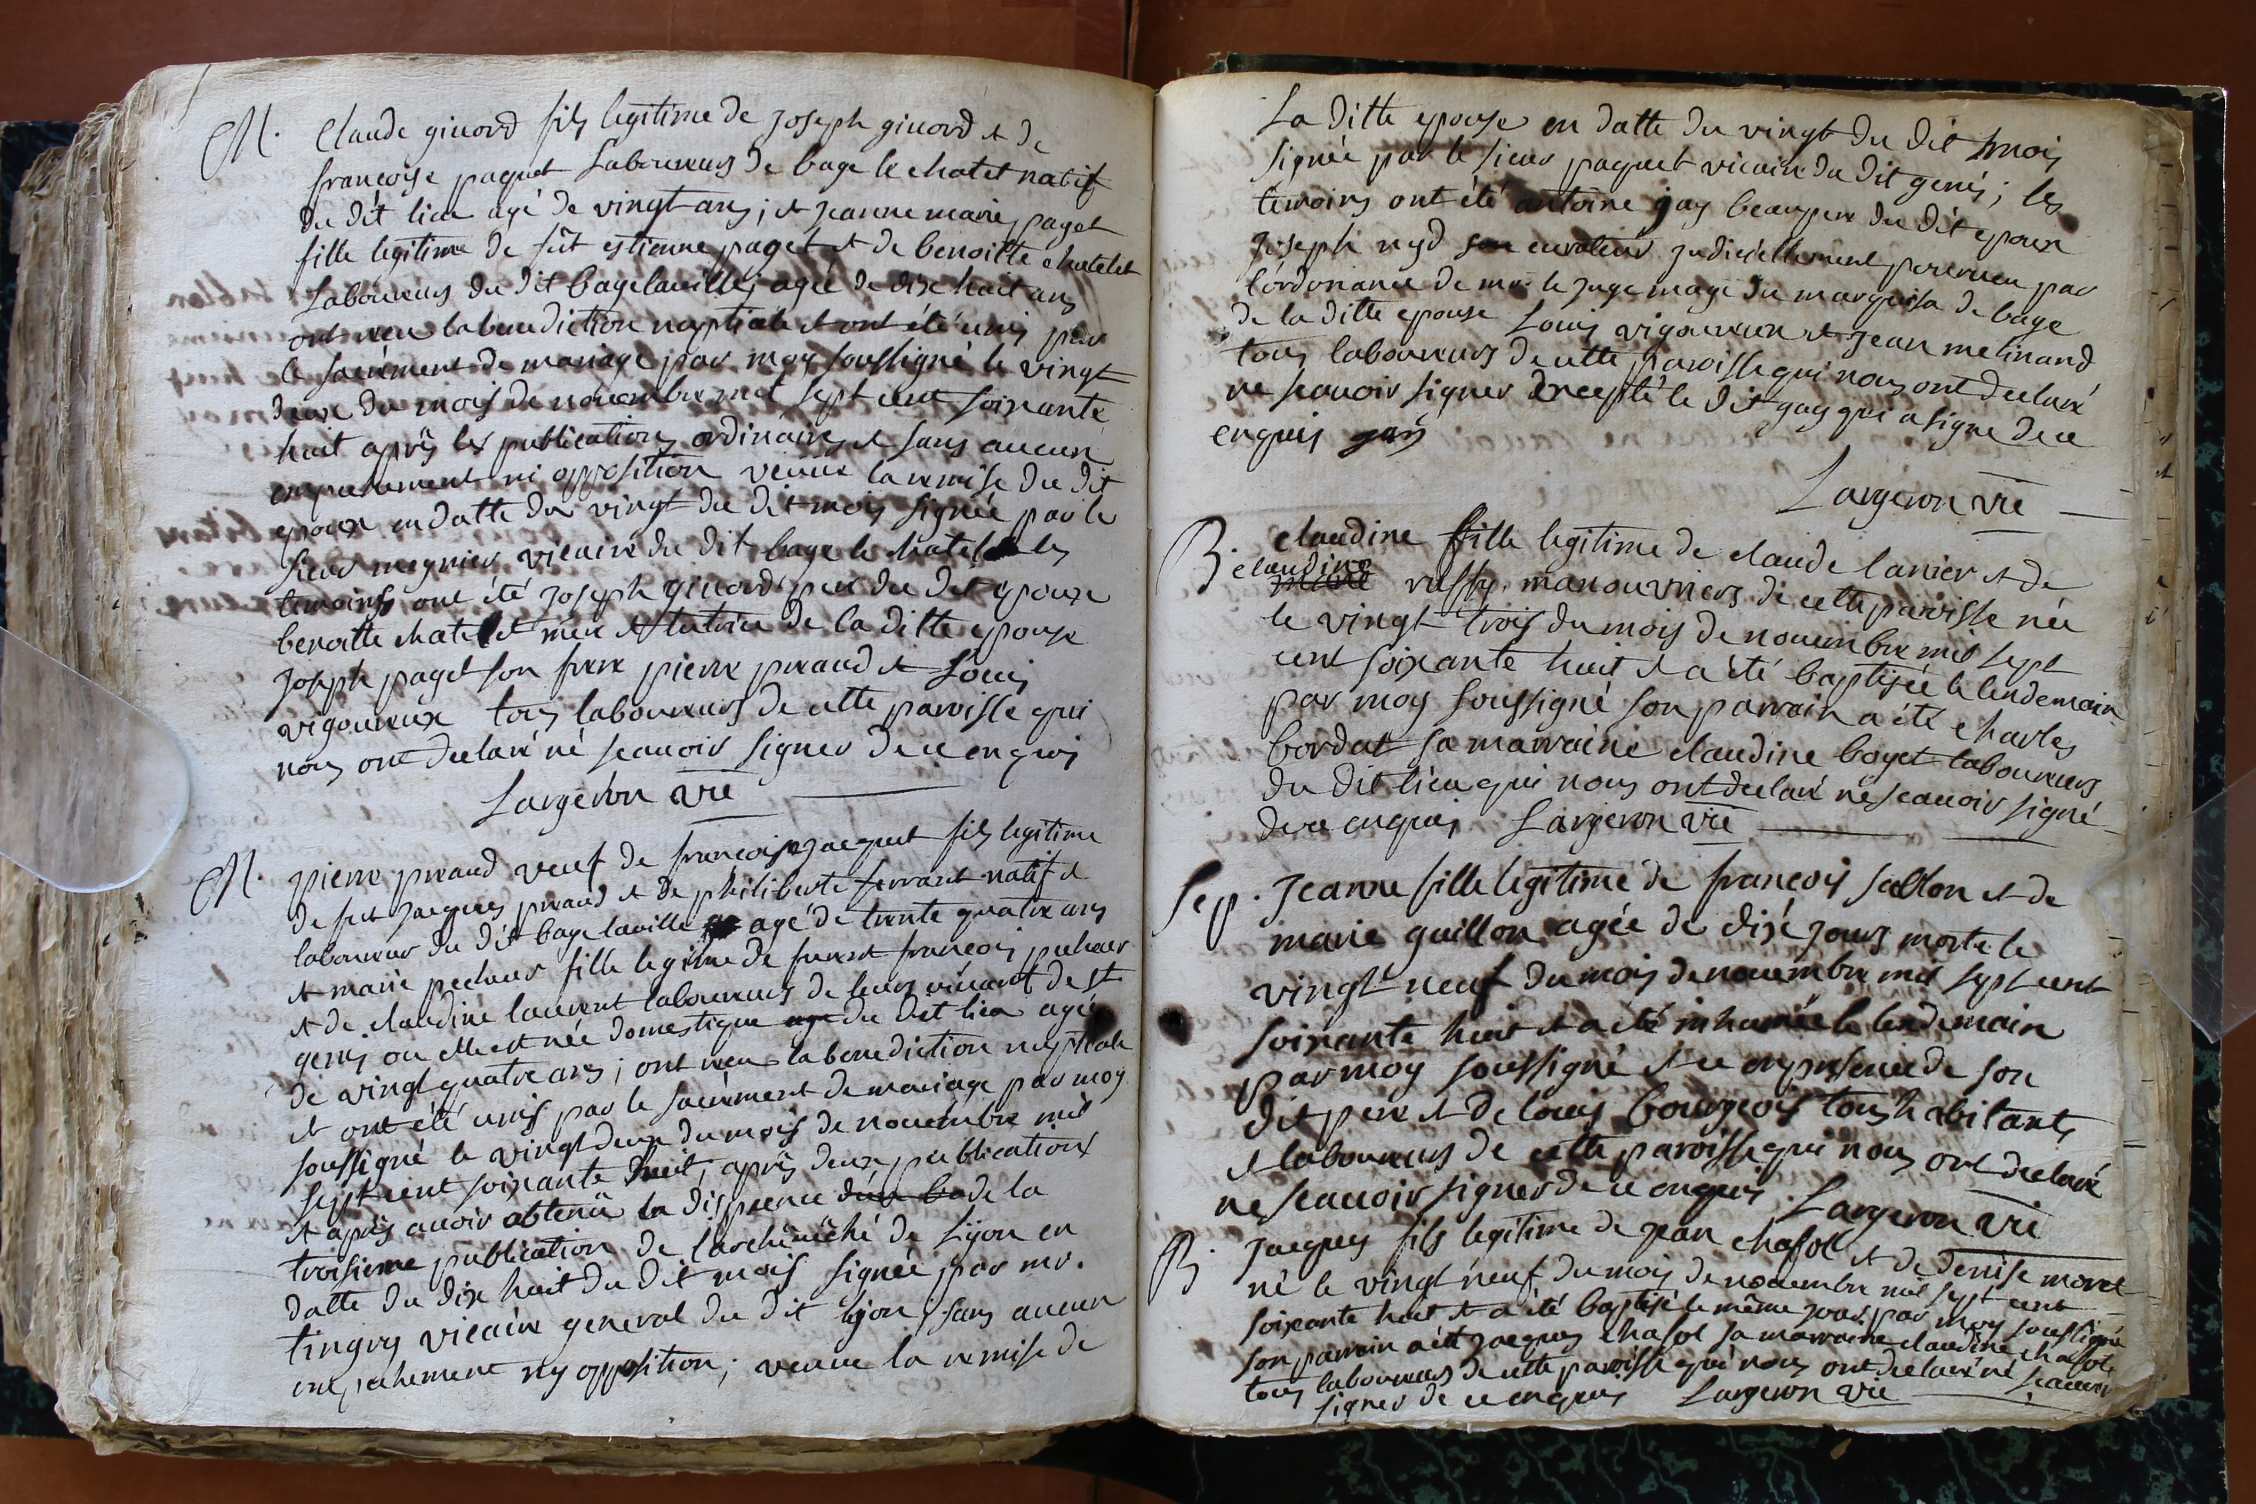 M. Claude givord fils legitime de joseph givord et de
françoise paquet Laboureurs de bage le chatet natif
du dit lieu agé de vingt ans ; et jeanne marie paget
fille legitime de fût estienne paget et de benoitte chatelet
Laboureurs du dit bagelaville agée de dixe huit ans
ont reeu la benediction nuptiale et ont été unis par
le sacrement de mariage par moy soussigné le vingt
deux du mois de novembre mil sept cent soixante
huit après les publications ordinaires et sans aucun
empechement ni opposition veüe la remise du dit
epoux en datte du vingt du dit mois signée par le
sieur vicaire du dit bage le chatel les
temoins ont été joseph givord pere du dit epoux
benoitte chatelet mere et tutrice de la ditte epouse
joseph paget son frere pierre peraud et Louis
vigoureux tous laboureurs de cette paroisse qui
nous ont declaré ne scauoir signer de ce enquis
Largeron vie
M. pierre peraud veuf de françoise jacquet fils legitime
de fut jacques peraud et de philiberte ferrant natif et
laboureur du dit bagelaville agé de trente quatre ans
et marie pecheur fille legitime de françois pecheur
et de claudine laurent laboureurs de leurs vivant de st
genis ou elle est née domestique du dit lieu agée
de vingt quatre ans ; ont reeu la benediction nuptiale
et ont été unis par le sacrement de mariage par moy
soussigné le vingt deux du mois de novembre mil
sept cent soixante huit, après deux publications
et après avoir obtenû la dispence de la
troisieme publication de l'archeuêché de Lyon en
datte du dixe huit du dit mois signée par mr.
tingry vicaire general du dit lyon, sans aucun
empechement ny opposition ; veüe la remise de
La ditte epouse en datte du vingt du dit mois
signée par le sieur paquet vicaire du dit genis ; les
temoins ont été antoine gay beaupere du dit epoux
joseph nyd curateur judiciellement pourveu par
l'ordonance de mr. le juge mage du marquisa de bage
de la ditte epouse Louis vigoureux et jean melinand
tous laboureurs de cette paroisse qui nous ont declaré
ne scauoir signer excepté le dit gay qui a signe de ce
enquis gay
Largeron vie
B. claudine fille legitime de claude lanier et de
claudine manouvriers de cette paroisse née
le vingt trois du mois de nouembre mil sept
cent soixante huit et a été baptisée le lendemain
par moy soussigné son parrain a été charles
bordat sa marraine claudine boyet laboureurs
du dit lieu qui nous ont declaré ne scauoir signé
de ce enquis Largeron vie
Sep. Jeanne fille legitime de françois sablon et de
marie guillon agée de dixe jours morte le
vingt neuf du mois de nouembre mil sept cent
soixante huit et a été inhumée le lendemain
par moy soussigné et ce en presence de son
dit pere et de louis bourgeois tous habitants
et laboureurs de cette paroisse qui nous ont declaré
ne scauoir signer de ce enquis Largeron vie
B. jacques fils legitime de jean chasot et de denise morel
né le vingt neuf du mois de nouembre mil sept cent
soixante huit et a été baptisé le même jour par moy soussigné
son parrain a été jacques chasot sa marraine claudine chasot
tous laboureurs de cette paroisse qui nous ont declaré ne scauoir
signer de ce enquis Largeron vie